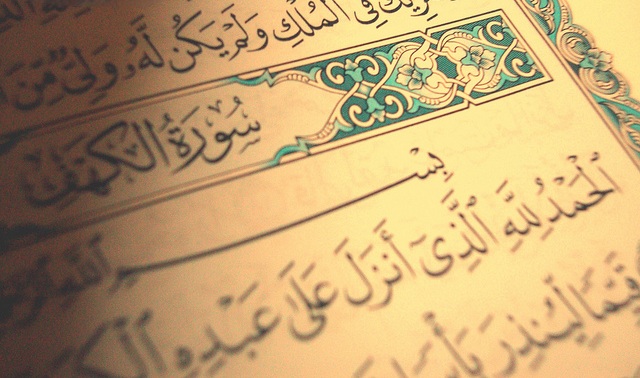 شَرِيكٌ فِى ٱلْمُلْكِ وَلَمْ يَكُن لَّهُۥ وَلِىٌّ مِّنَ
سُورَةُ الكَهْفِ
بِسْمِ ٱللَّهِ
ٱلْحَمْدُ لِلَّهِ ٱلَّذِىٓ أَنزَلَ عَلَىٰ عَبْدِهِ ٱلْكِتَٰبَ
قَيِّمًا لِّيُنذِرَ بَأْسًا